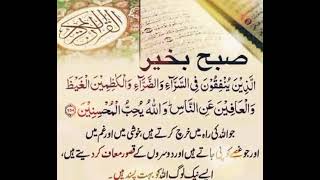 القرآن الكريم
صبح بخیر
الَّذِيْنَ يُنْفِقُوْنَ فِى السَّرَّآءِ وَالضَّرَّآءِ وَالْكٰظِمِيْنَ الْغَيْظَ
وَالْعَافِيْنَ عَنِ النَّاسِ ؕ وَاللّٰهُ يُحِبُّ الْمُحْسِنِيْنَ
جو اللہ کی راہ میں خرچ کرتے ہیں، خوشی میں اور غم میں
اور جو غصے کو پی جاتے ہیں اور دوسروں کے قصور معاف کر دیتے ہیں،
ایسے نیک لوگ اللہ کو بہت پسند ہیں۔